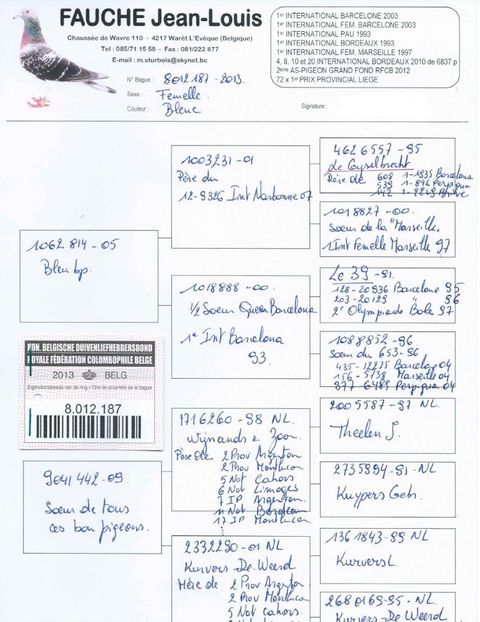 FAUCHE Jean-Louis
Chaussée de Wavre 110 - 4217 Warêt L'Evêque (Belgique)
Tel : 085/71 15 58 - Fax : 081/222 877
E-mail : m.sturbois@skynet.be
1er INTERNATIONAL BARCELONE 2003
1er INTERNATIONAL FEM. BARCELONE 2003
1er INTERNATIONAL PAU 1993
1er INTERNATIONAL BORDEAUX 1993
1er INTERNATIONAL FEM. MARSEILLE 1997
4, 8, 10 et 20 INTERNATIONAL BORDEAUX 2010 de 6837 p
2ème AS-PIGEON GRAND FOND RFCB 2012
72 x 1er PRIX PROVINCIAL LIEGE
N° Bague : 8012187 - 2013.
Sexe : Femelle.
Couleur : Bleue
Signature :
1062814-05
Bleu bp.
1003231-01
Père du
12-9326 Int Narbonne 07
1018888-00.
1/2 Soeur Queen Barcelona
1e Int Barcelona
93
4626557-95
Le Gyselbrecht
Père de 608 1-1535 Barcelona
1018827-00.
Soeur de la "Marseille,
1 Int Femelle Marseille 97
Le 39 -91.
128-20936 Barcelone 95
203-20129 " 96
2e Olympiade Bale 97
1088852-96
Soeur du 653-96
435-12275 Barcelone 04
156-5738 Marseille 04
377-6489 Perpignan 04
VON. BELGISCHE DUIVENLIEFHEBBERSBOND
ROYALE FÉDÉRATION COLOMBOPHILE BELGE
2013 BELG
Eigendomsbewijs van de ring • Titre de propriété de la bague
8.012.187
9041442-09.
Soeur de tous
ces bon pigeons.
1716260-98 NL.
Wijnands & Zoon.
Père de 2 Prov Argenton
2 Prov Montlucon
5 Nat Cahors
6 Nat Limoges
7 IP Argenton.
11 Nat Bordeaux
17 IP Montlucon.
2332290-01 NL
Kurvers-De Weerd
Mère de 2 Prov Argenton
2 Prov Montlucon
5 Nat Cahors.
2005587-97 NL.
Theelen J.
2735894-91-NL
Kuypers Gebr.
1361843-99 NL
Kurvers L
2680169-95-NL
Kurvers-De Weerd